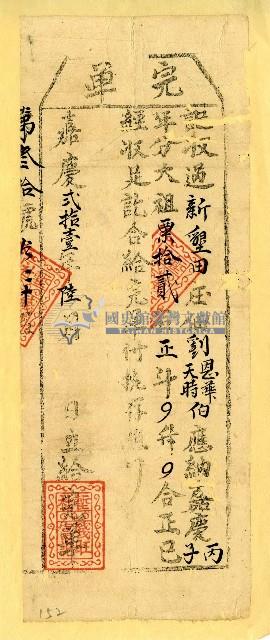 完單
記收過新墾田庄 劉恩華天時伯 應納嘉慶丙子
年分大租粟拾貳 正斗 升 合正已
經收足訖合給完單付執存炤
嘉慶貳拾壹年陸月 日立給完單
第叁拾號
國史館臺灣文獻館
152